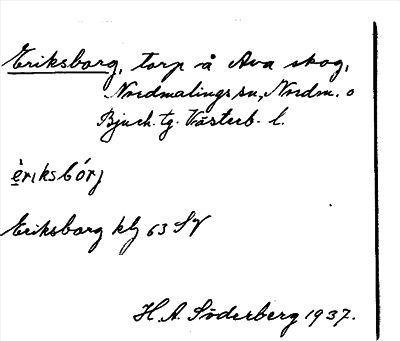 Eriksborg, torp å Ava skog,
Nordmalings sn, Nordm. o
Bjurh. tg. Västerb. l.
èriksbórj
Eriksborg kbl 63 SV
H. A. Söderberg 1937.